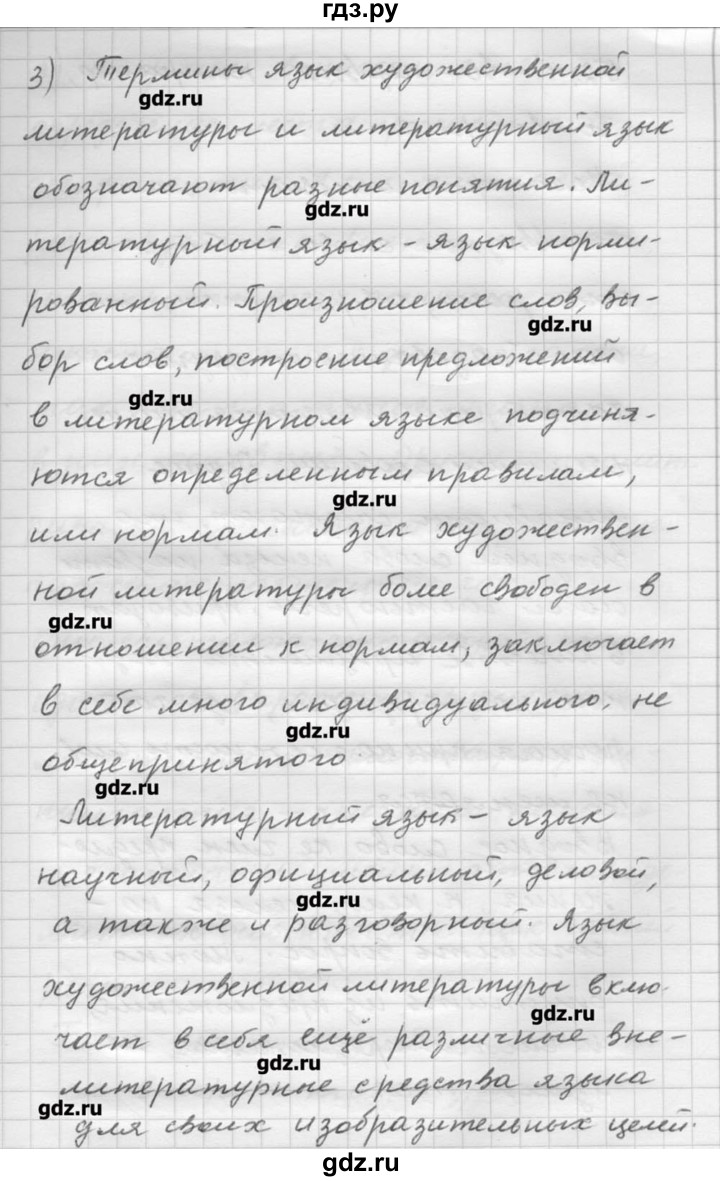 гдз.ру
3) Термины язык художественной
gdz.ru
литературы и литературный язык
обозначают разные понятия. Ли-
gdz.ru
тературный язык - язык норми-
рованный. Произношение слов, вы-
gdz.ru
бор слов, построение предложений
gdz.ru
в литературном языке подчиня-
ются определенным правилам,
gdz.ru
или нормам. Язык художествен-
ной литературы более свободен в
gdz.ru
отношении к нормам, заключает
в себе много индивидуального, не
gdz.ru
общепринятого.
gdz.ru
Литературный язык - язык
научный, официальный, деловой,
gdz.ru
а также и разговорный. Язык
художественной литературы вклю-
gdz.ru
чает в себя ещё различные вне-
gdz.ru
литературные средства языка
gdz.ru
для своих изобразительных целей.
gdz.ru